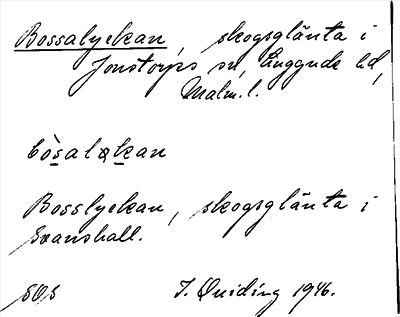 Bossalyckan, skogsglänta i
Jonstorps sn, Luggude hd,
Malm. l.
bòsaløkan
Bosslyckan, skogsglänta i
Svanshall.
SOS I. Quiding 1946.